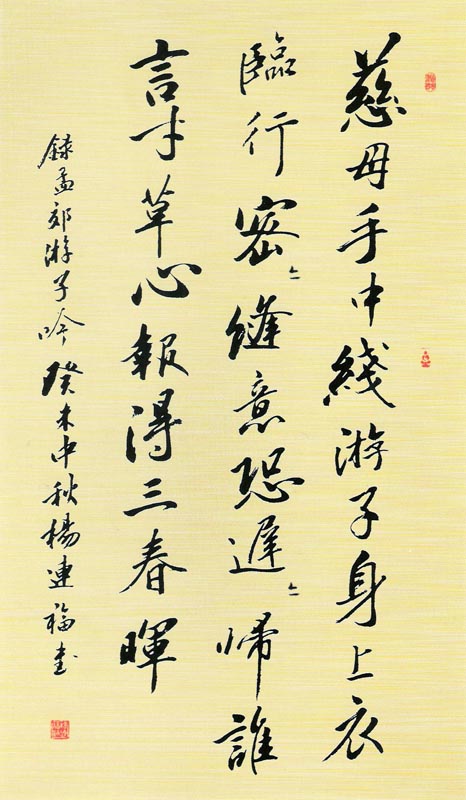 慈母手中綫游子身上衣
臨行密〻縫意恐遲〻帰誰
言寸草心報得三春暉
錄孟郊游子吟癸未中秋楊連福書